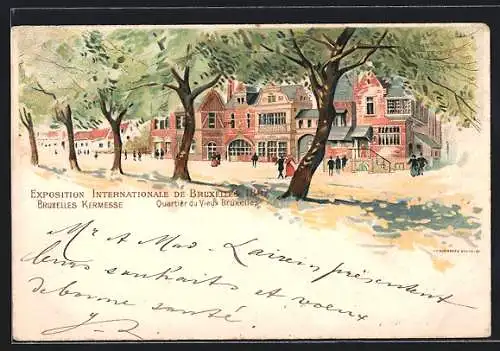 EXPOSITION INTERNATIONALE DE BRUXELLES 1897
BRUXELLES KERMESSE Quartier du Vieux Bruxelles
Mr & Mad. présentent
leurs souhaits et voeux
de bonne santé